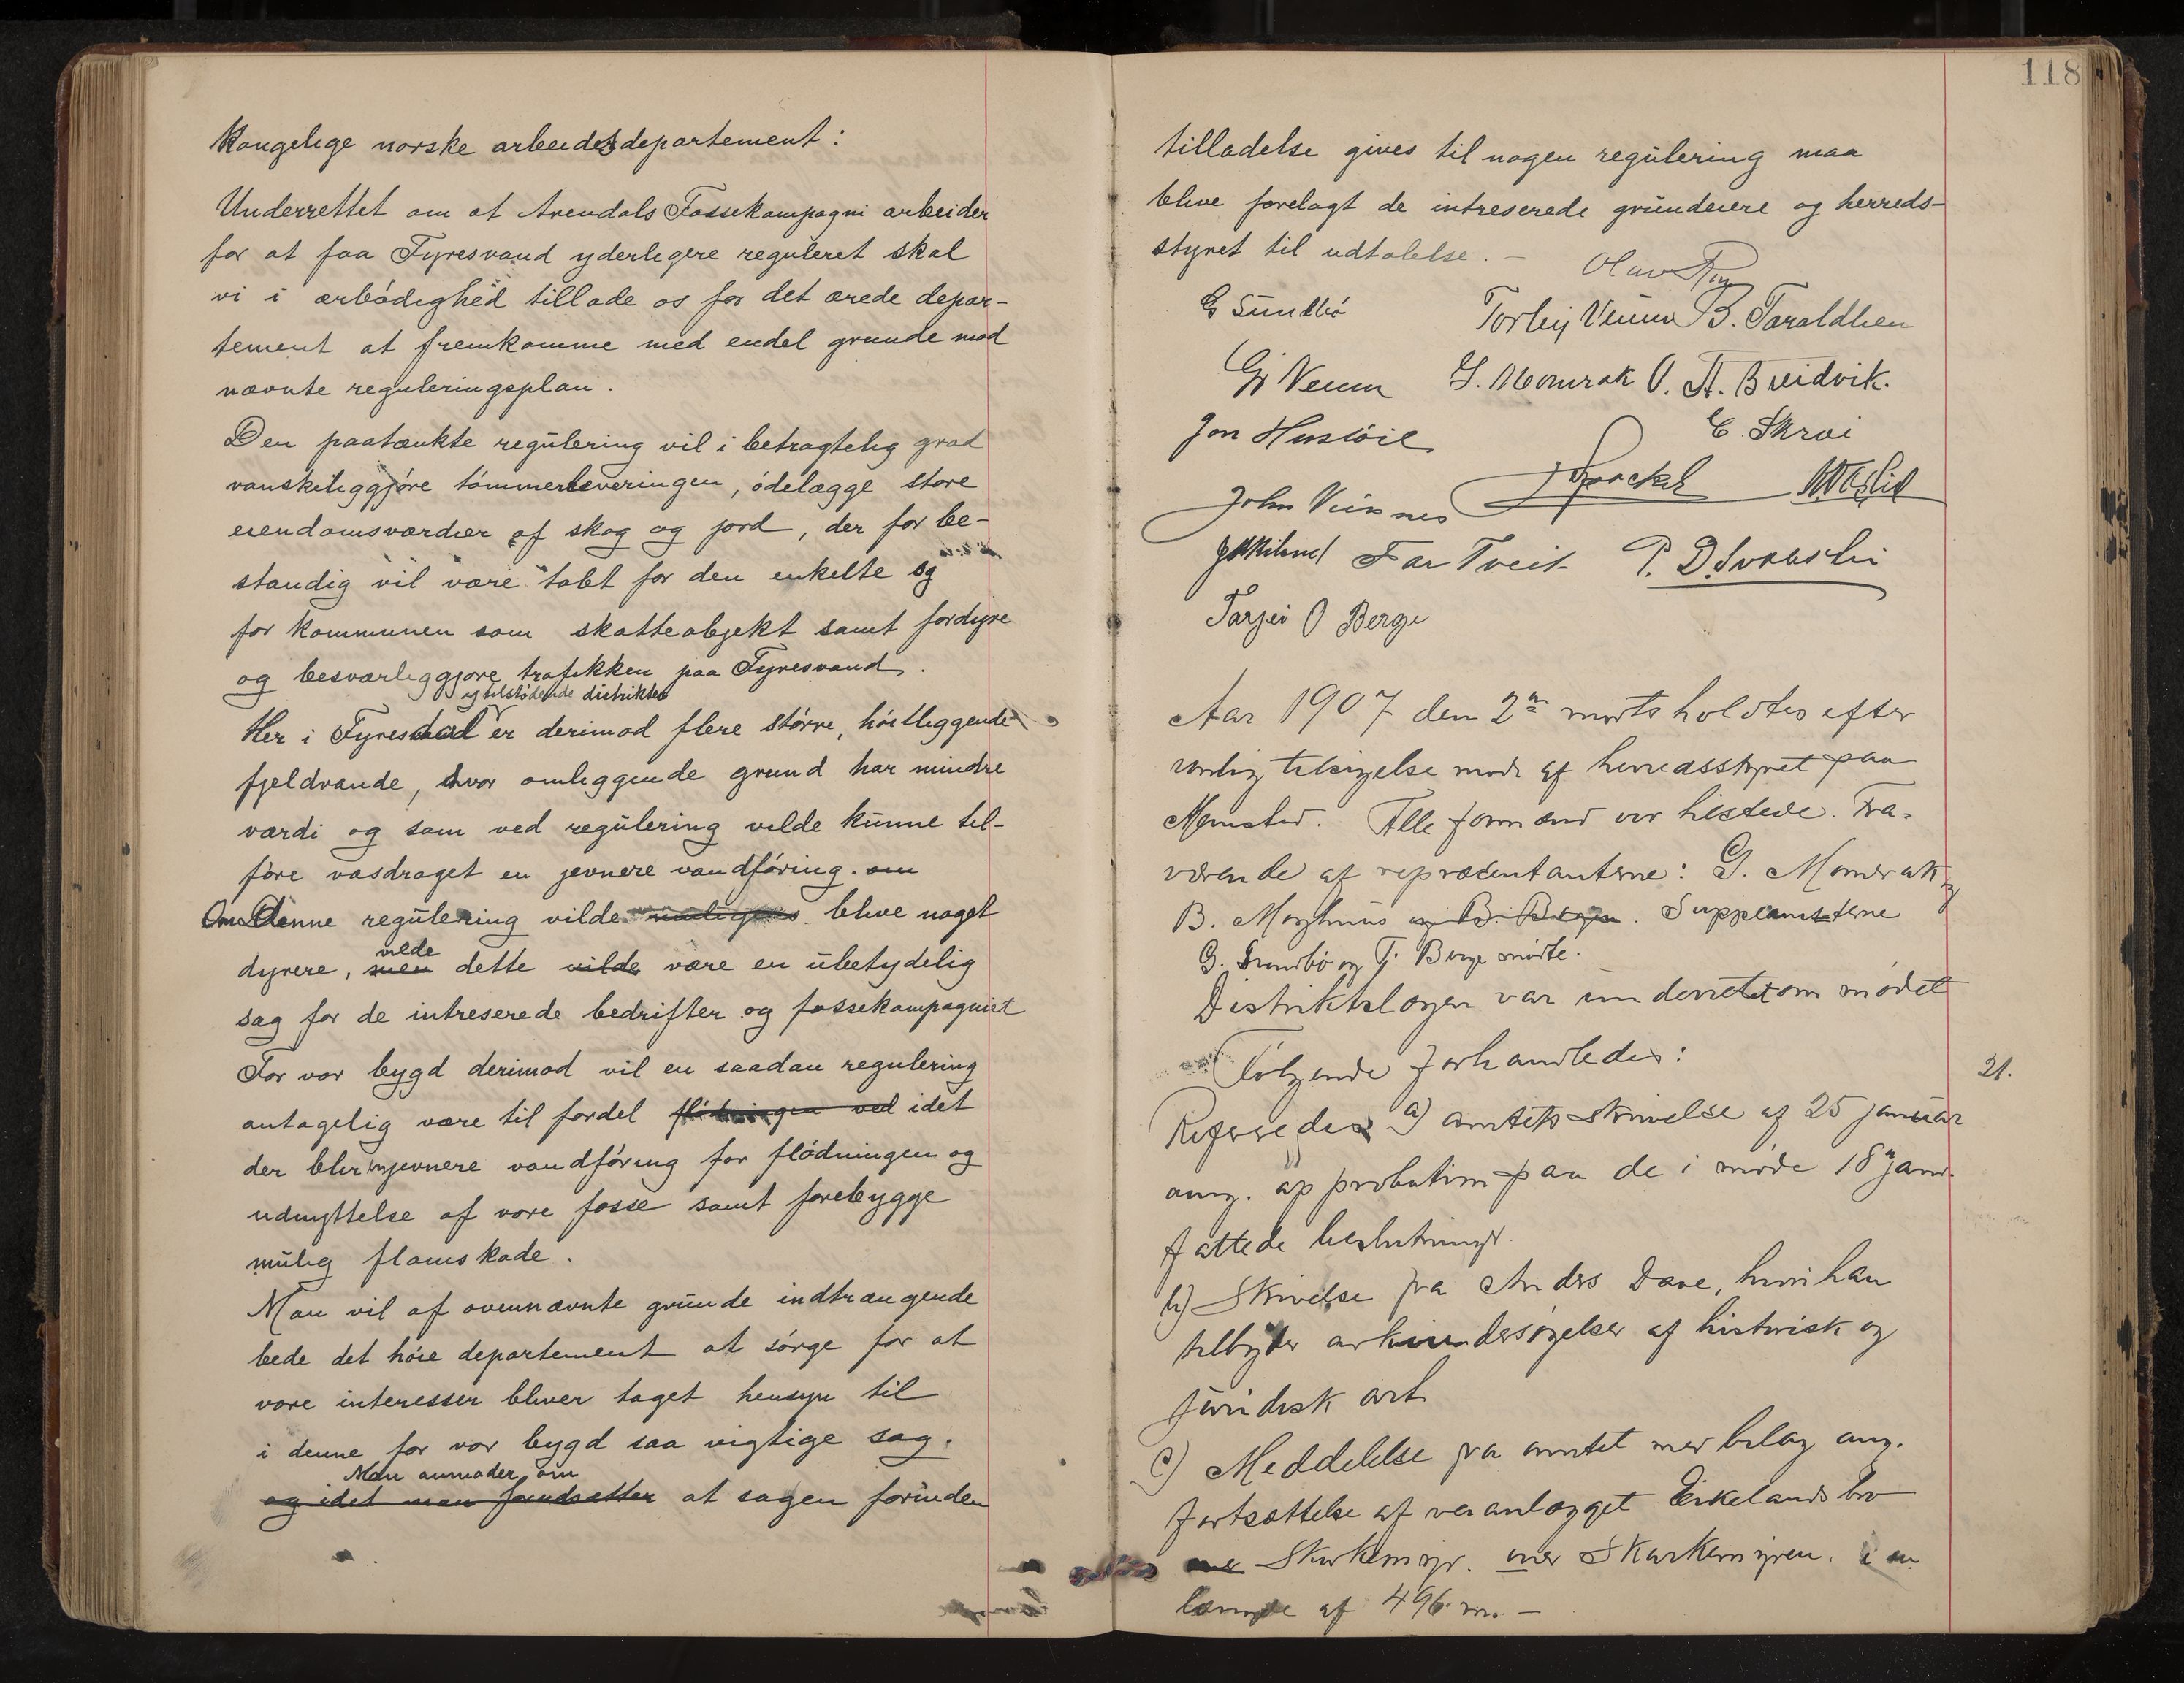 Kongelige norske arbeidsdepartement:
Underrettet om at Arendals Fossekompagni arbeider
for at faa Fyresvand yderligere reguleret skal
vi i ærbødighed tillade os for det ærede depar-
tement at fremkomme med endel grunde mod
nævnte reguleringsplan.
Den paatænkte regulering vil i betragtelig grad
vanskeliggjøre tømmerleveringen, ødelægge store
eiendomsværdier af skog og jord, der for be-
standig vil være tabt for den enkelte og
for kommunen som skatteobjekt samt fordyre
og besværliggjøre trafikken paa Fyresvand.
og tilstødende distrikter
Her i Fyresdal er derimod flere større, høitliggende
fjeldvande, hvor omliggende grund har mindre
værdi og som ved regulering vilde kunne til-
føre vasdraget en jevnere vandføring. om
Om Denne regulering vilde muligens blive noget
vilde
dyrere, men dette vilde være en ubetydelig
sag for de intreserede bedrifter og fossekompagniet
For vor bygd derimod vil en saadan regulering
antagelig være til fordel flødningen ved idet
der blir en jevnere vandføring for flødningen og
udnyttelse af vore fosse samt forebygge
mulig flomskade.
Man vil af ovennævnte grunde indtrængende
bede det høie departement at sørge for at
vore interesser bliver taget hensyn til
i denne for vor bygd saa vigtige sag.
Man anmoder om
og idet man forudsætter at sagen forinden
118
tilladelse gives til nogen regulering maa
blive forelagt de intreserede grundeiere og herreds-
styret til udtalelse. –
Olav
G Sundbø Torbjj Veum B. Taraldlien
Gj Veum G. Momrak O. A. Breidvik.
Jon Hustøil E. Skrei
John Veisnes
Far Tveit P. D. Svovsli
Tarjei O Berge
Aar 1907 den 2n marts holdtes efter
lovlig tilsigelse møde af herredsstyret paa
Momstad. Alle formænd var tilstede. Fra-
værende af repræsentanterne: G. Momrak og
B. Moghuus og B. Bergen. Suppleanterne
G. Sundbø og T. Berge mødte.
Distriktslægen var underrettet om mødet
Følgende forhandledes:
21.
Refereredes a) amtets skrivelse af 25 januar
ang. approbation paa de i møde 18n janr.
fattede beslutninger.
b) Skrivelse fra Anders Daae, hvori han
tilbyder arkivundersøgelser af historisk og
juridisk art
c) Meddelelse fra amtet med bilag ang.
fortsættelse af veianlægget Eikelands bro
over Skarkemyr. over Skarkemyren. i en
længde af 496 m. –